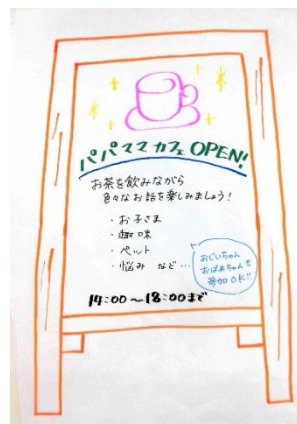 パパママカフェ OPEN!
お茶を飲みながら
色々なお話を楽しみましょう!
・お子さま
・趣味
・ペット
・悩み など…
おじいちゃん
おばあちゃんも
参加OK!!
14:00〜18:00まで